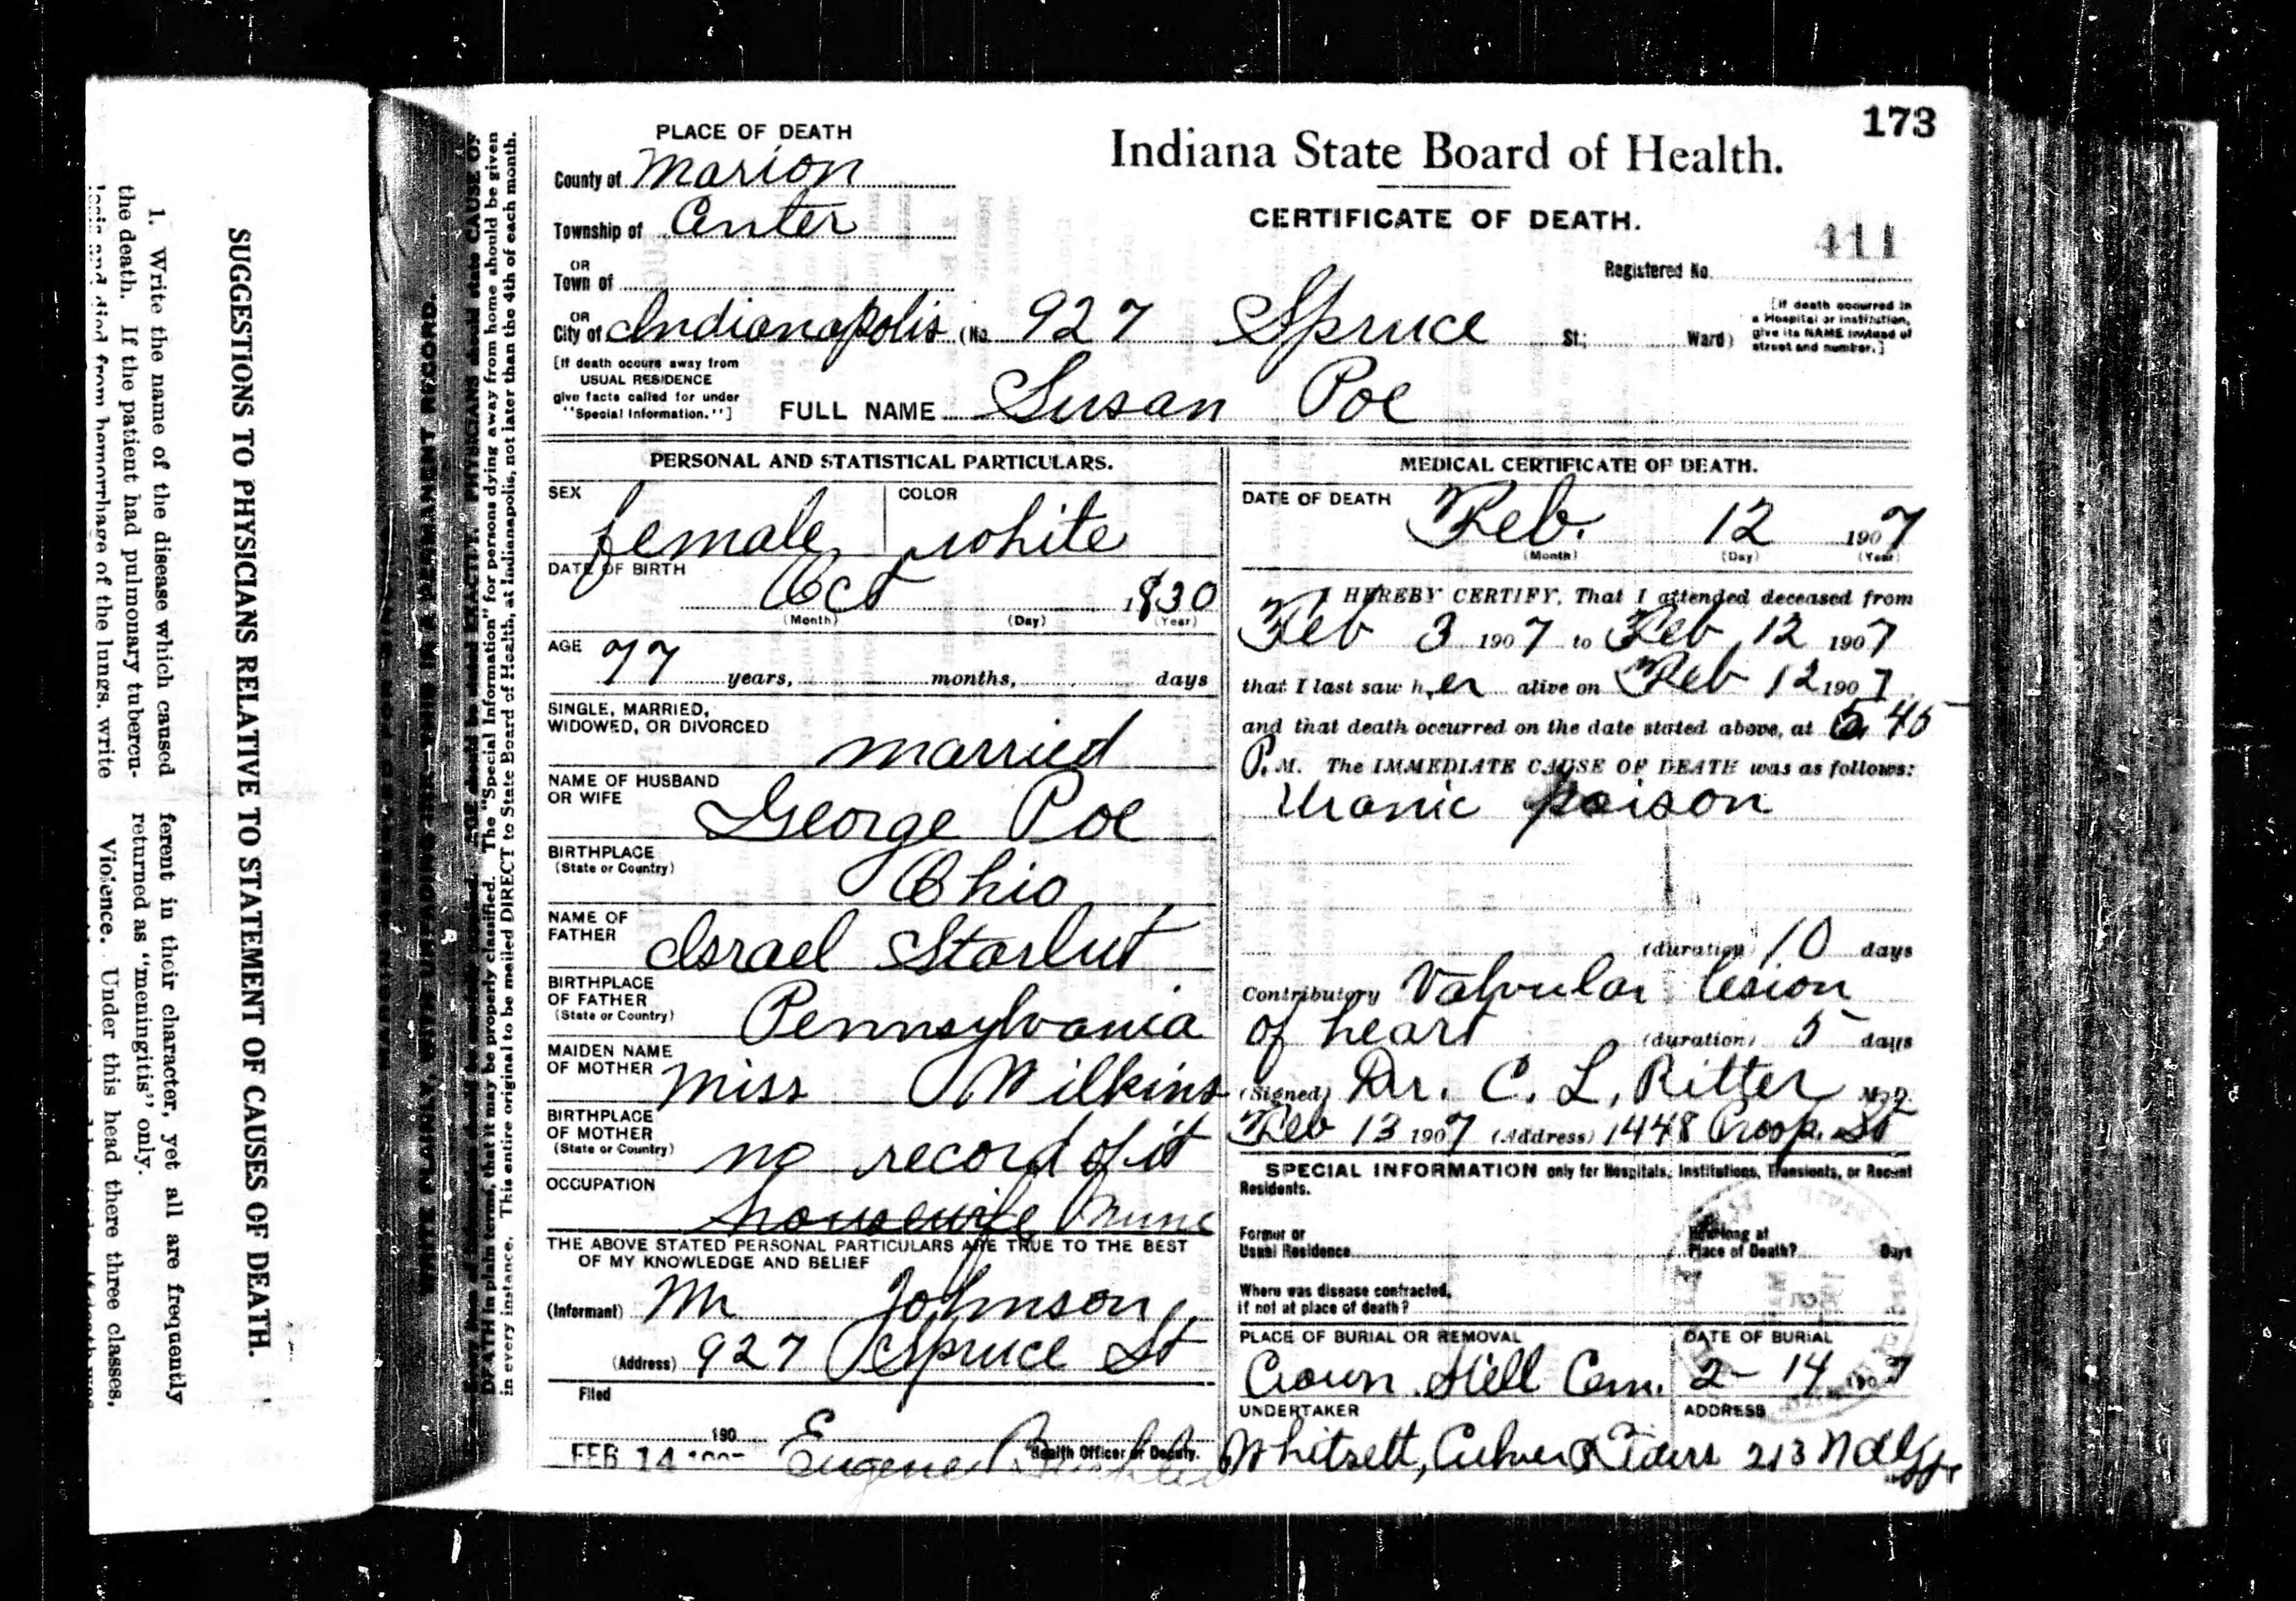 173
PLACE OF DEATH
County of Marion
Township of Center
OR
Town of
OR
City of Indianapolis (No. 927 Spruce St.; Ward)
Indiana State Board of Health.
CERTIFICATE OF DEATH.
411
Registered No.
[If death occurred in
a Hospital or institution,
give its NAME instead of
street and number.]
[If death occurs away from
USUAL RESIDENCE
give facts called for under
"Special Information."]
FULL NAME Susan Poe
PERSONAL AND STATISTICAL PARTICULARS.
SEX female COLOR white
DATE OF BIRTH
Oct 1830
(Month) (Day) (Year)
AGE 77 years, months, days
SINGLE, MARRIED,
WIDOWED, OR DIVORCED
married
NAME OF HUSBAND
OR WIFE
George Poe
BIRTHPLACE
(State or Country)
Ohio
NAME OF
FATHER
Israel Starbut
BIRTHPLACE
OF FATHER
(State or Country)
Pennsylvania
MAIDEN NAME
OF MOTHER
Miss Wilkins
BIRTHPLACE
OF MOTHER
(State or Country)
no record of it
OCCUPATION
housewife
THE ABOVE STATED PERSONAL PARTICULARS ARE TRUE TO THE BEST
OF MY KNOWLEDGE AND BELIEF
(Informant) Mr Johnson
(Address) 927 Spruce St
Filed
190
FEB 14
Eugene
Health Officer or Deputy.
MEDICAL CERTIFICATE OF DEATH.
DATE OF DEATH
Feb. 12 1907
(Month) (Day) (Year)
I HEREBY CERTIFY, That I attended deceased from
Feb 3 1907 to Feb 12 1907
that I last saw her alive on Feb 12 1907
and that death occurred on the date stated above, at 5 45
P. M. The IMMEDIATE CAUSE OF DEATH was as follows:
Uranic poison
(duration) 10 days
Contributory Valvular lesion
of heart (duration) 5 days
(Signed) Dr. C. L. Ritter M. D.
Feb 13 1907 (Address) 1448 Prosp. St
SPECIAL INFORMATION only for Hospitals, Institutions, Transients, or Recent
Residents.
Former or
Usual Residence
How long at
Place of Death? Days
Where was disease contracted,
if not at place of death?
PLACE OF BURIAL OR REMOVAL
Crown Hill Cem.
DATE OF BURIAL
2-14 1907
UNDERTAKER
Whitsett, Culver &
ADDRESS
213 N
SUGGESTIONS TO PHYSICIANS RELATIVE TO STATEMENT OF CAUSES OF DEATH.
1. Write the name of the disease which caused
the death. If the patient had pulmonary tubercu-
losis and died from hemorrhage of the lungs, write
ferent in their character, yet all are frequently
returned as "meningitis" only.
Violence. Under this head there three classes,
WRITE PLAINLY, WITH UNFADING INK—THIS IS A PERMANENT RECORD.
PHYSICIANS should state CAUSE OF
DEATH in plain terms, that it may be properly classified. The "Special Information" for persons dying away from home should be given
in every instance. This entire original to be mailed DIRECT to State Board of Health, at Indianapolis, not later than the 4th of each month.